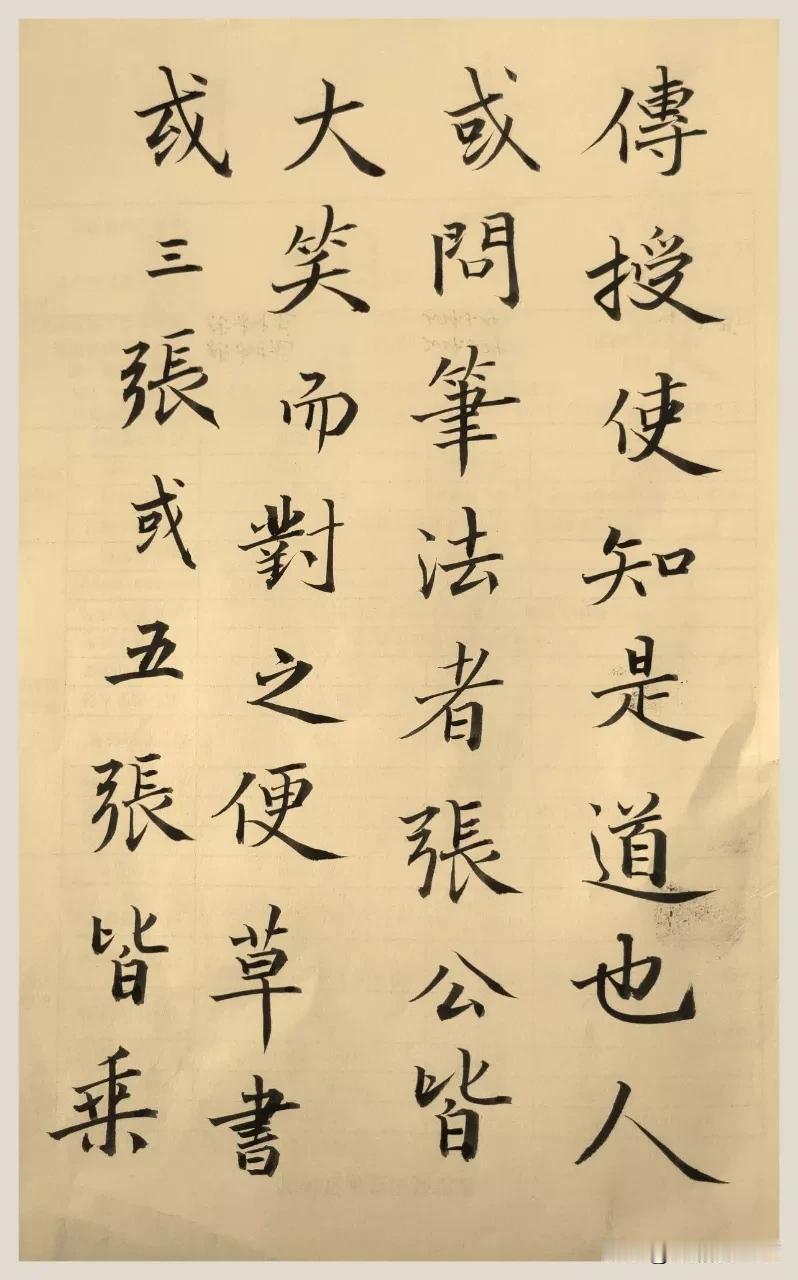 傳授使知是道也人
或問筆法者張公皆
大笑而對之便草書
或三張或五張皆乗